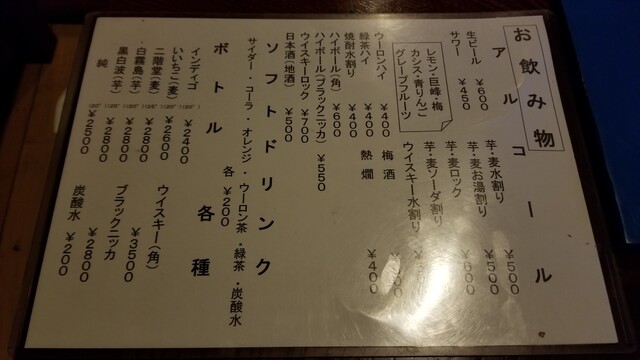 お飲み物
アルコール
生ビール ¥600
サワー ¥450
レモン・巨峰・梅
カシス・青りんご
グレープフルーツ
ウーロンハイ ¥400
緑茶ハイ ¥400
焼酎水割り ¥400
ハイボール(角) ¥600
ハイボール(ブラックニッカ) ¥550
ウイスキーロック ¥700
日本酒(地酒) ¥500
芋・麦水割り ¥500
芋・麦お湯割り ¥500
芋・麦ロック ¥600
芋・麦ソーダ割り
ウイスキー水割り
梅酒
熱燗 ¥400
ソフトドリンク
サイダー・コーラ・オレンジ・ウーロン茶・緑茶・炭酸水
各 ¥200
ボトル各種
インディゴ ¥2400
いいちこ(麦) ¥2600
二階堂(麦) ¥2800
白霧島(芋) ¥2800
黒白波(芋) ¥2800
純 ¥2500
ウイスキー(角) ¥3500
ブラックニッカ ¥2800
炭酸水 ¥200